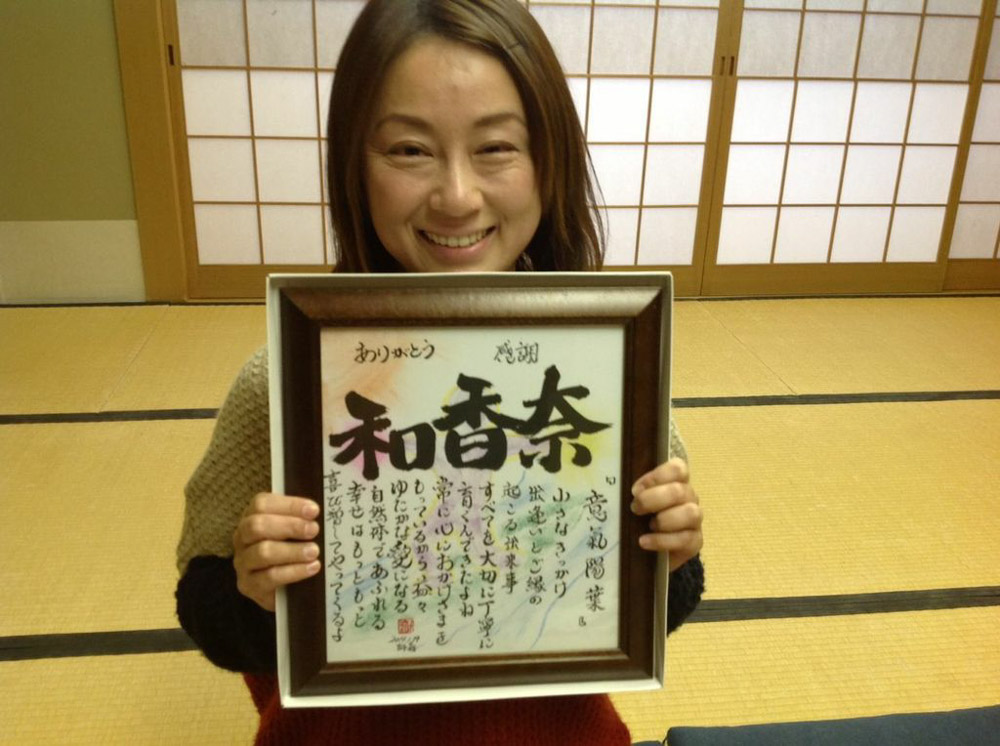 ありがとう 感謝
和香奈
『意氣陽葉』
小さなきっかけ
出逢いとご縁の
起こる出来事
すべてを大切に丁寧に
育くんできたよね
常に心におかげさまを
もっているから、益々
ゆたかな愛になる
自然体であふれる
幸せはもっともっと
喜び勇してやってくるよ